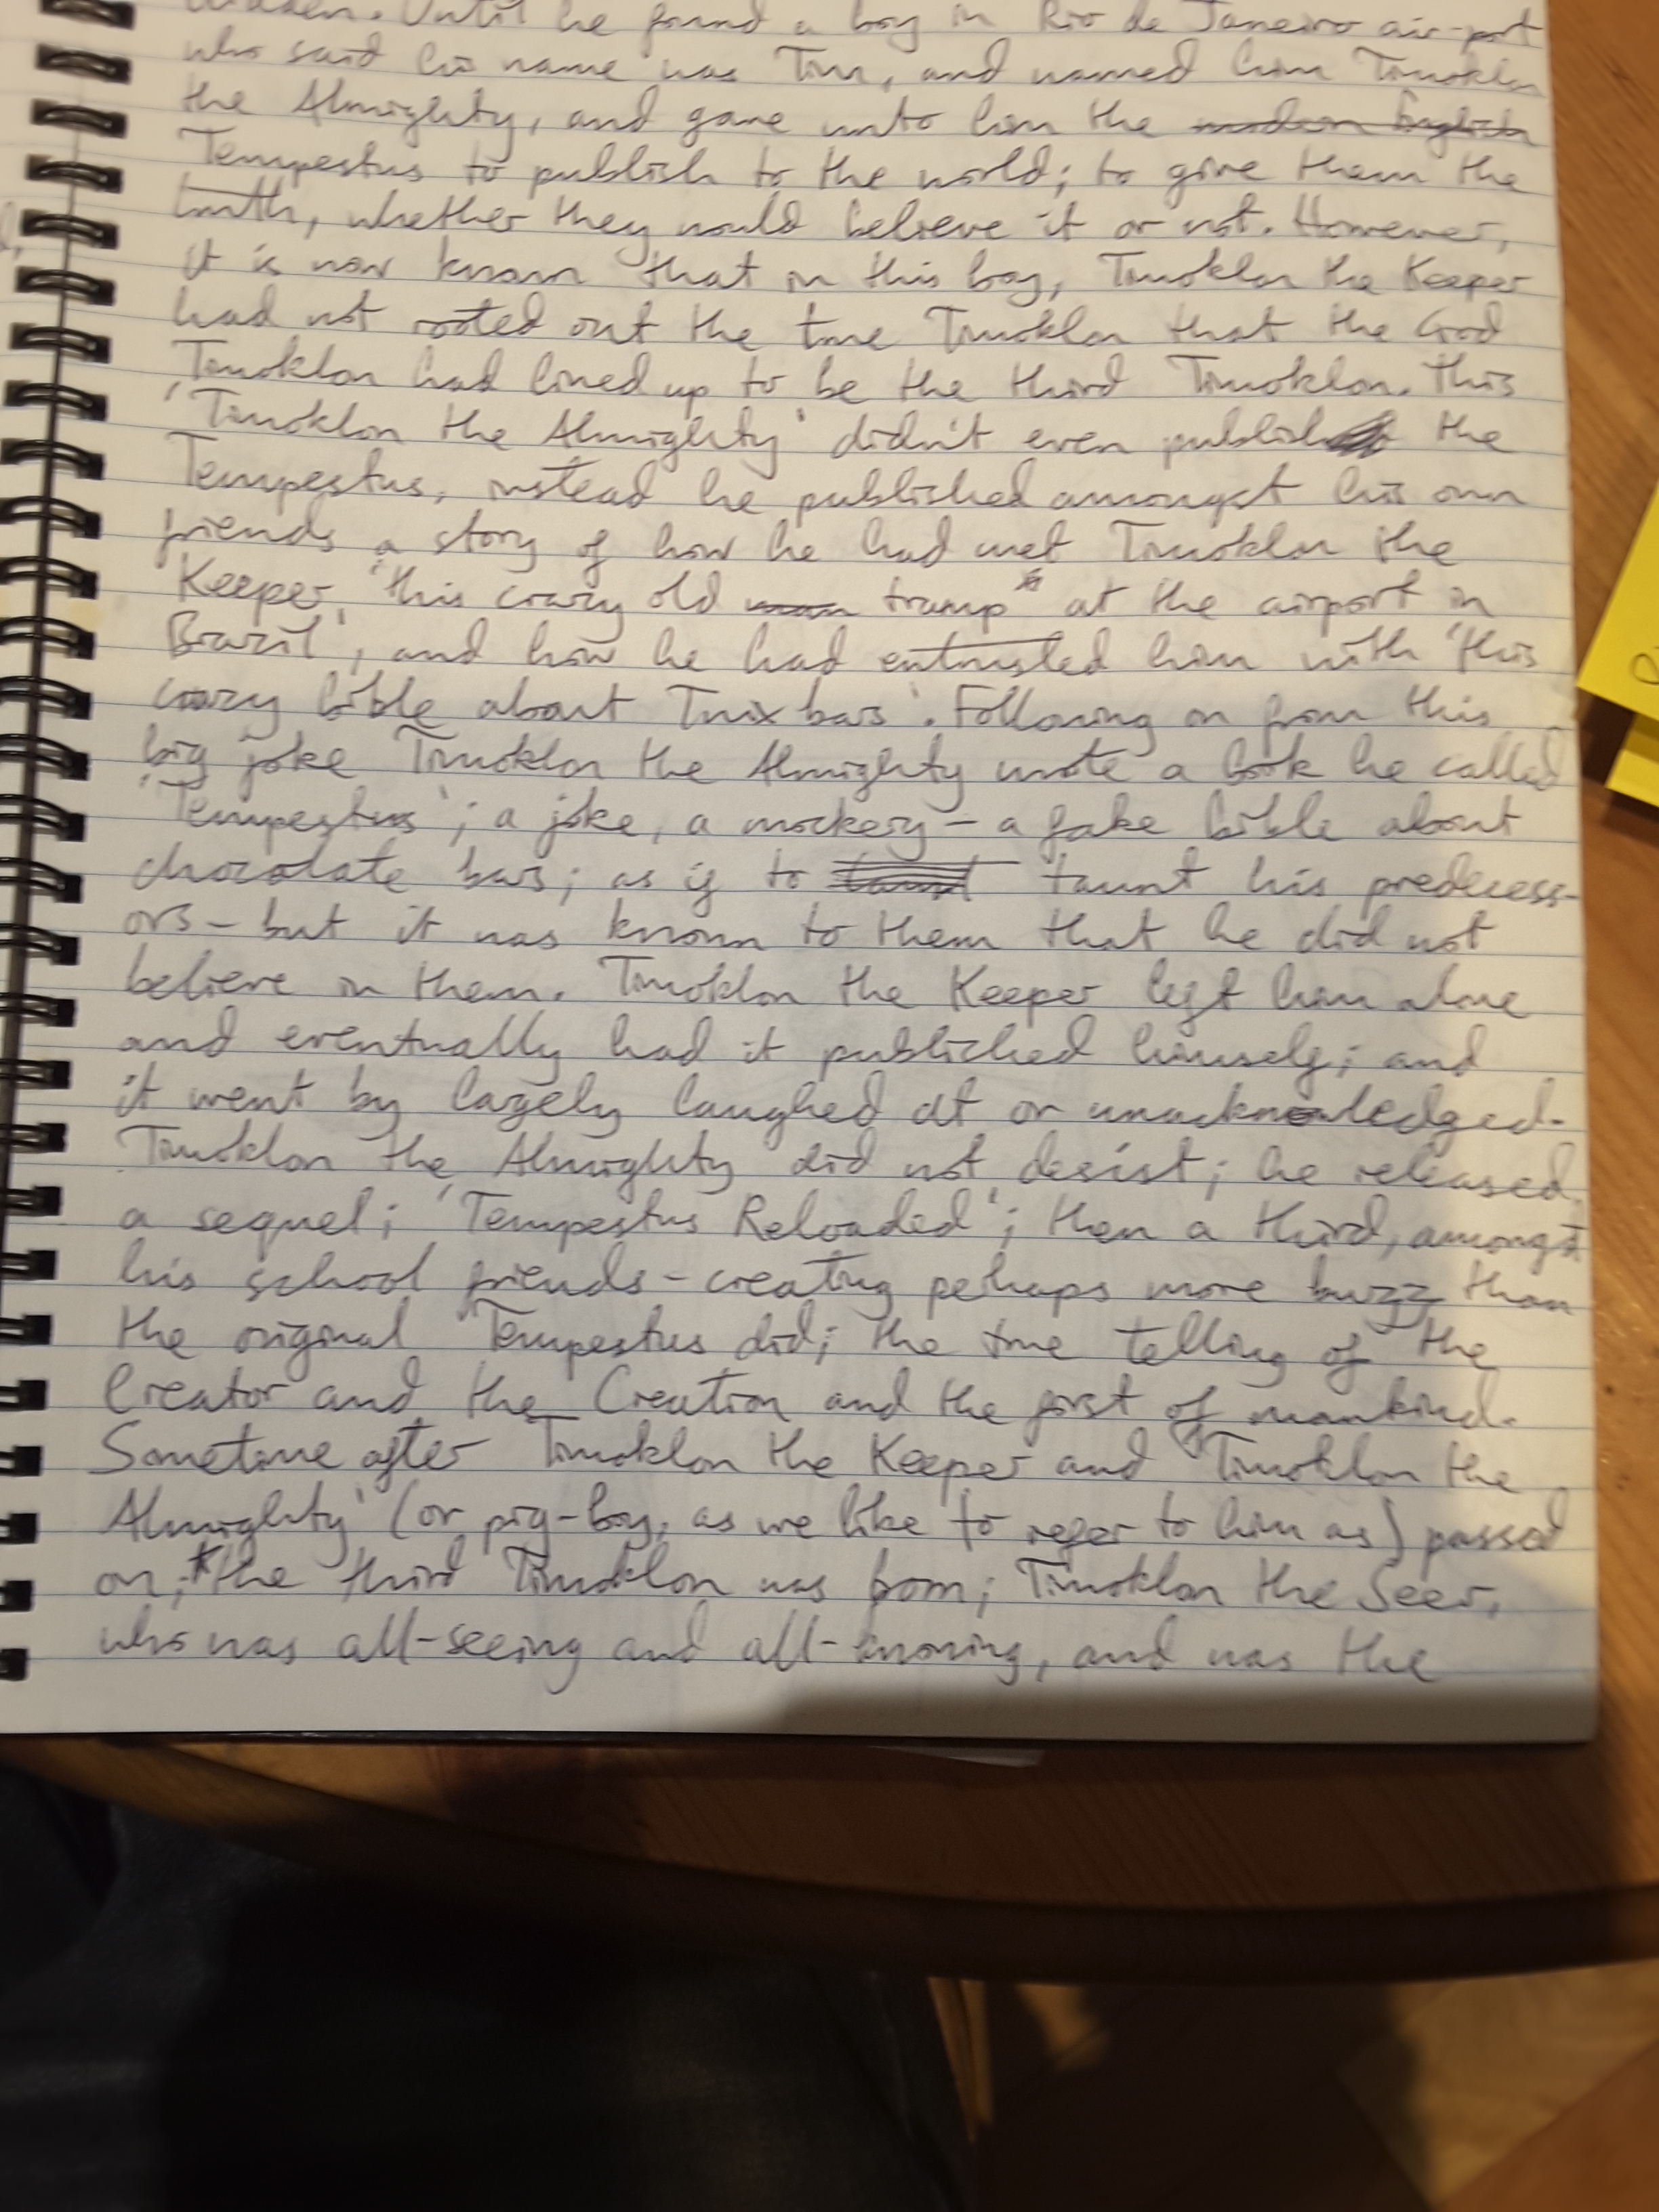 hidden. Until he found a boy in Rio de Janeiro air-port
who said his name was Tim, and named him Timoklon
the Almighty, and gave unto him the modern English
Tempestus to publish to the world; to give them the
truth, whether they would believe it or not. However,
it is now known that in this boy, Timoklon the Keeper
had not rooted out the true Timoklon that the God
Timoklon had lined up to be the third Timoklon. This
'Timoklon the Almighty' didn't even publish the
Tempestus, instead he published amongst his own
friends a story of how he had met Timoklon the
Keeper, 'this crazy old man tramp* at the airport in
Brazil', and how he had entrusted him with 'this
crazy bible about Twix bars'. Following on from this
big joke Timoklon the Almighty wrote a book he called
'Tempestus'; a joke, a mockery - a fake bible about
chocolate bars; as if to taunt taunt his predecess-
ors - but it was known to them that he did not
believe in them. Timoklon the Keeper left him alone
and eventually had it published himself; and
it went by largely laughed at or unacknowledged.
Timoklon the Almighty did not desist; he released
a sequel; 'Tempestus Reloaded'; then a third, amongst
his school friends - creating perhaps more buzz than
the original Tempestus did; the true telling of the
Creator and the Creation and the first of mankind.
Sometime after Timoklon the Keeper and 'Timoklon the
Almighty' (or pig-boy, as we like to refer to him as) passed
on;* the third Timoklon was born; Timoklon the Seer,
who was all-seeing and all-knowing, and was the